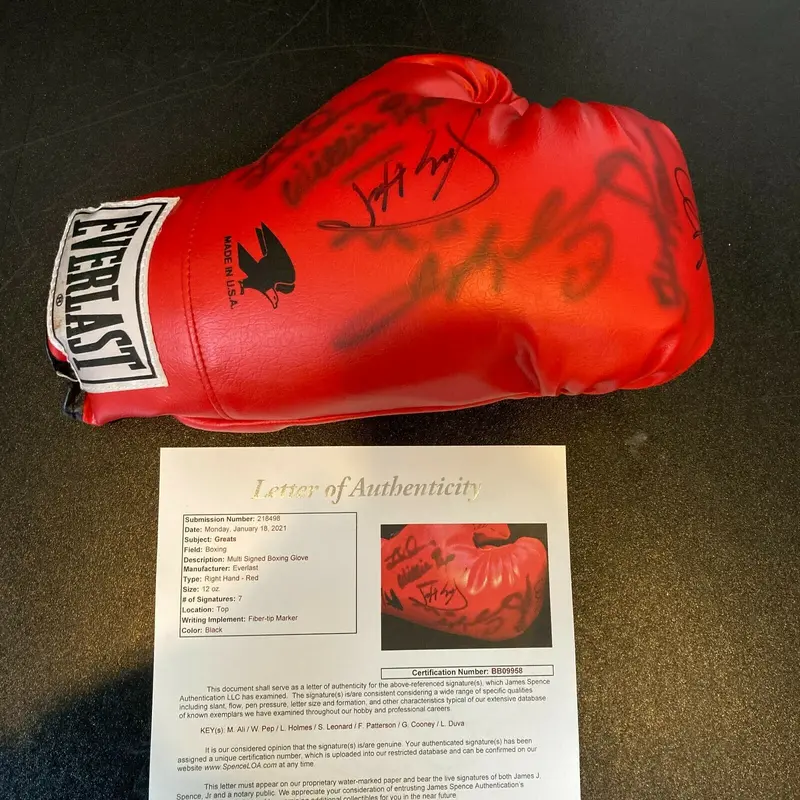 Willie Pep
EVERLAST
®
MADE IN U.S.A.
Letter of Authenticity
Submission Number: 218498
Date: Monday, January 18, 2021
Subject: Greats
Field: Boxing
Description: Multi Signed Boxing Glove
Manufacturer: Everlast
Type: Right Hand - Red
Size: 12 oz.
# of Signatures: 7
Location: Top
Writing Implement: Fiber-tip Marker
Color: Black
Certification Number: BB09958
This document shall serve as a letter of authenticity for the above-referenced signature(s), which James Spence
Authentication LLC has examined. The signature(s) is/are consistent considering a wide range of specific qualities
including slant, flow, pen pressure, letter size and formation, and other characteristics typical of our extensive database
of known exemplars we have examined throughout our hobby and professional careers.
KEY(s): M. Ali / W. Pep / L. Holmes / S. Leonard / F. Patterson / G. Cooney / L. Duva
It is our considered opinion that the signature(s) is/are genuine. Your authenticated signature(s) has been
assigned a unique certification number, which is uploaded into our restricted database and can be confirmed on our
website www.SpenceLOA.com at any time.
This letter must appear on our proprietary water-marked paper and bear the live signatures of both James J.
Spence, Jr and a notary public. We appreciate your consideration of entrusting James Spence Authentication's
additional collectibles for you in the near future.